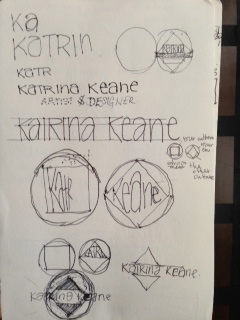 Ka
KATRIN
KATR
KATRINA KEANE
ARTIST & DESIGNER
KATRINA KEANE
KATR
Keane
KATRINA KEANE.
KATRINA KEANE